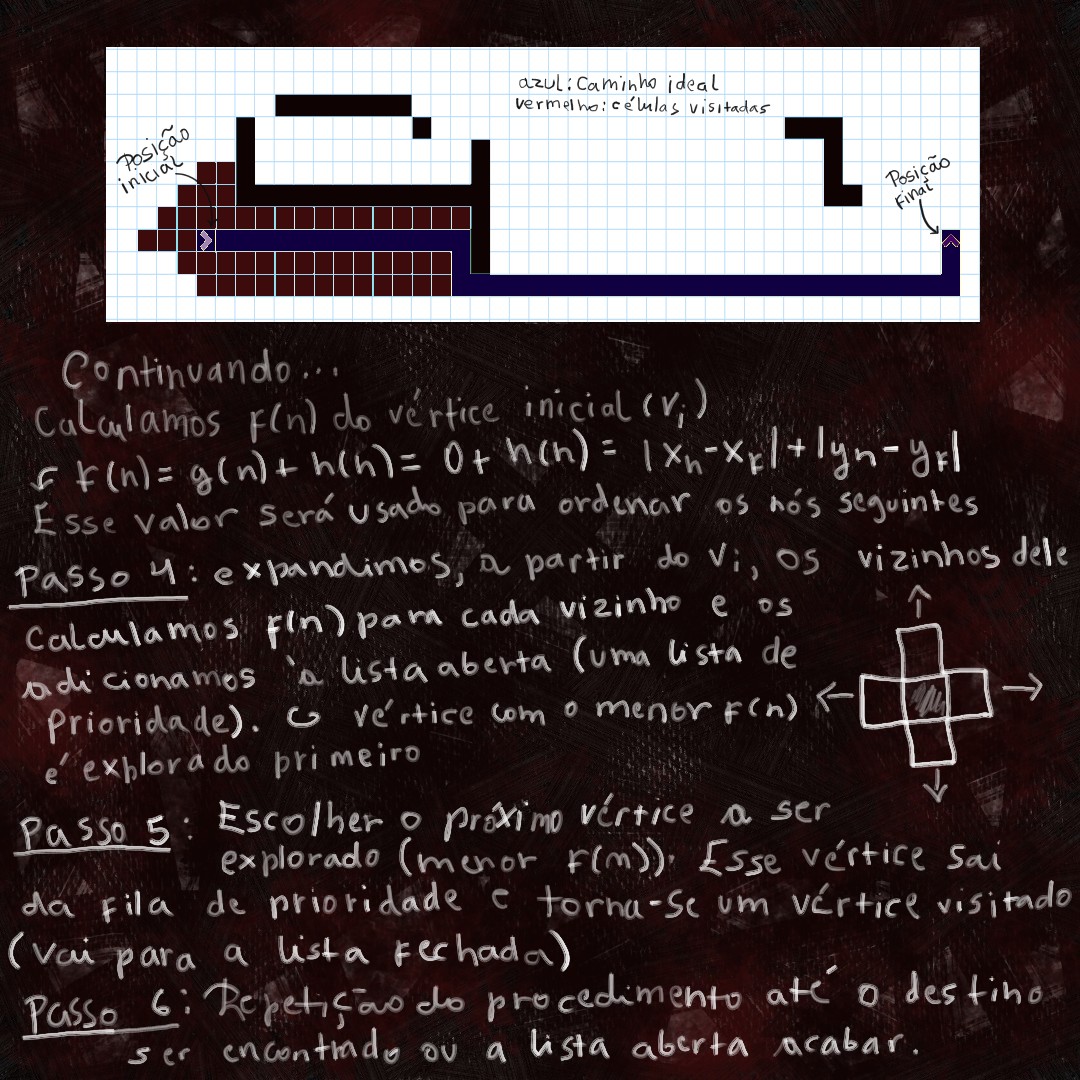 azul: Caminho ideal
vermelho: células visitadas
Posição
inicial
Posição
Final
Continuando...
Calculamos F(n) do vértice inicial (Vi)
F(n) = g(n) + h(n) = 0 + h(n) = |xn - xF| + |yn - yF|
Esse valor será usado para ordenar os nós seguintes
Passo 4: expandimos, a partir do Vi, os vizinhos dele
Calculamos F(n) para cada vizinho e os
adicionamos à lista aberta (uma lista de
prioridade). O vértice com o menor F(n)
é explorado primeiro
Passo 5: Escolher o próximo vértice a ser
explorado (menor F(n)). Esse vértice sai
da fila de prioridade e torna-se um vértice visitado
(vai para a lista fechada)
Passo 6: Repetição do procedimento até o destino
ser encontrado ou a lista aberta acabar.